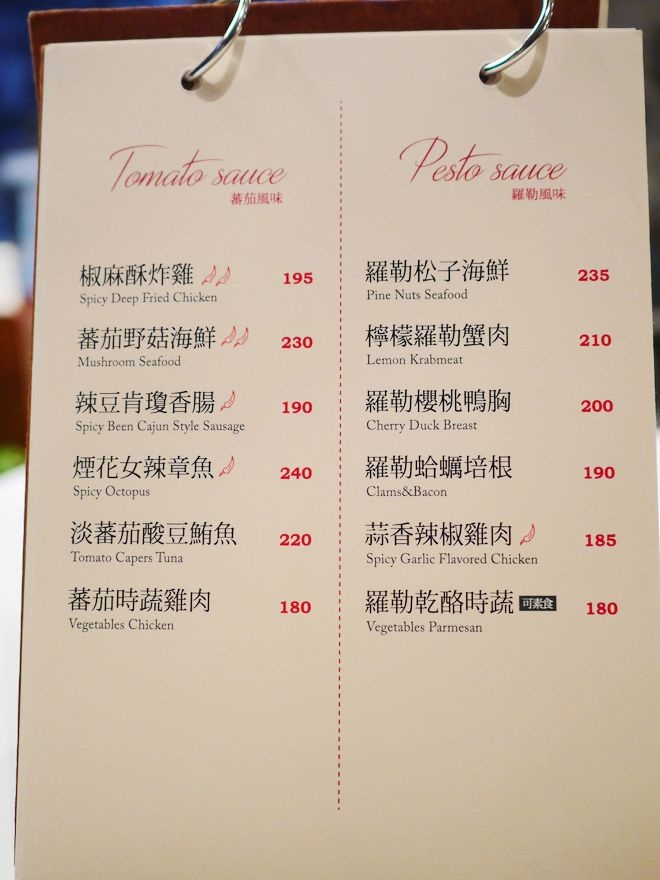 Tomato sauce
蕃茄風味
椒麻酥炸雞 195
Spicy Deep Fried Chicken
蕃茄野菇海鮮 230
Mushroom Seafood
辣豆肯瓊香腸 190
Spicy Been Cajun Style Sausage
煙花女辣章魚 240
Spicy Octopus
淡蕃茄酸豆鮪魚 220
Tomato Capers Tuna
蕃茄時蔬雞肉 180
Vegetables Chicken
Pesto sauce
羅勒風味
羅勒松子海鮮 235
Pine Nuts Seafood
檸檬羅勒蟹肉 210
Lemon Krabmeat
羅勒櫻桃鴨胸 200
Cherry Duck Breast
羅勒蛤蠣培根 190
Clams&Bacon
蒜香辣椒雞肉 185
Spicy Garlic Flavored Chicken
羅勒乾酪時蔬 可素食 180
Vegetables Parmesan